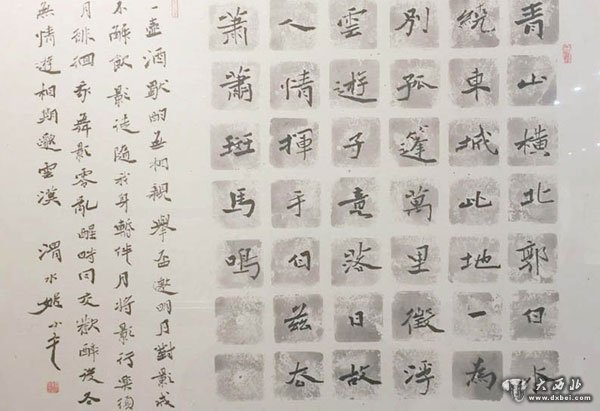 青山横北郭白水
繞東城此地一為
別孤篷萬里徵浮
雲遊子意落日故
人情揮手自茲去
蕭蕭班馬鳴
一壺酒獨酌無相親舉盃邀明月對影成
不解飲影徒隨我身暫伴月將影行樂須
月徘徊我舞影零亂醒時同交歡醉後各
無情遊相期邈雲漢 渭水姬小平
大西北
www.dxbei.com